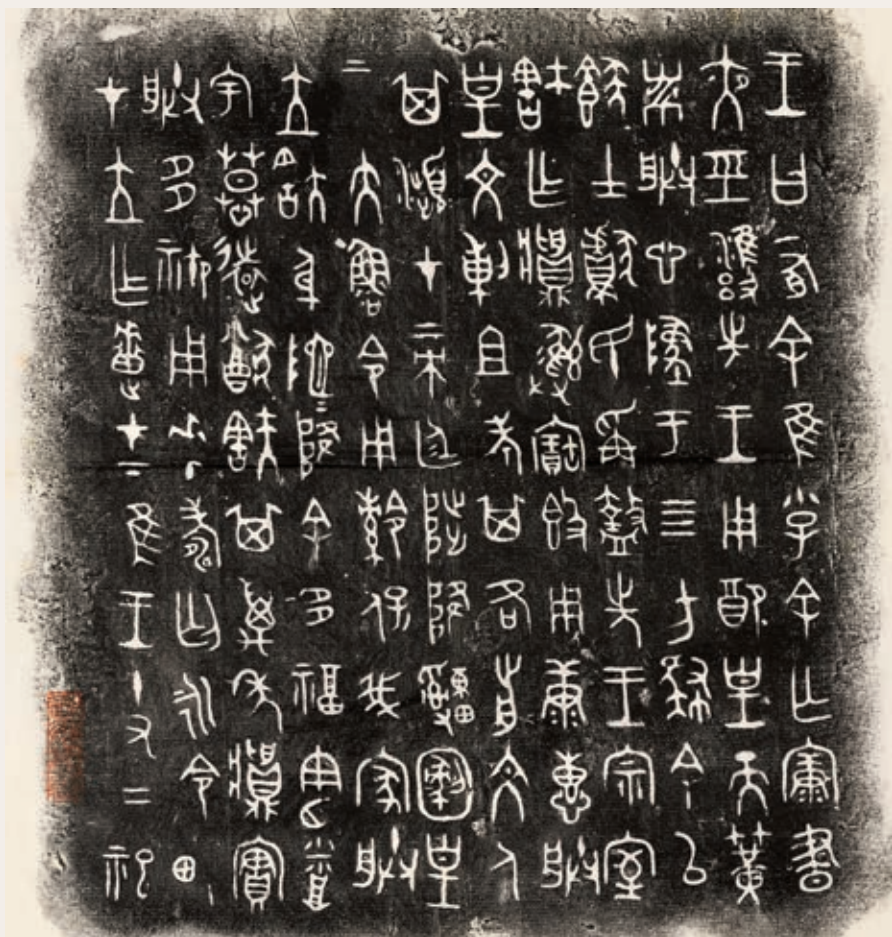 王曰有余隹小子余亡康晝
夜巠雍先王用配皇天簧
黹朕心墜于四方肆余以
士獻民爯盩先王宗室
㝬乍彝寶簋用康惠朕
皇文剌且考其各前文人
其瀕才帝廷陟降皇
帝大魯令用保我家朕
立㝬身阤=降余多福憲烝
宇慕遠猷㝬其萬年實
朕多禦用壽匄永令畯
才立乍疐才下隹王十又二祀